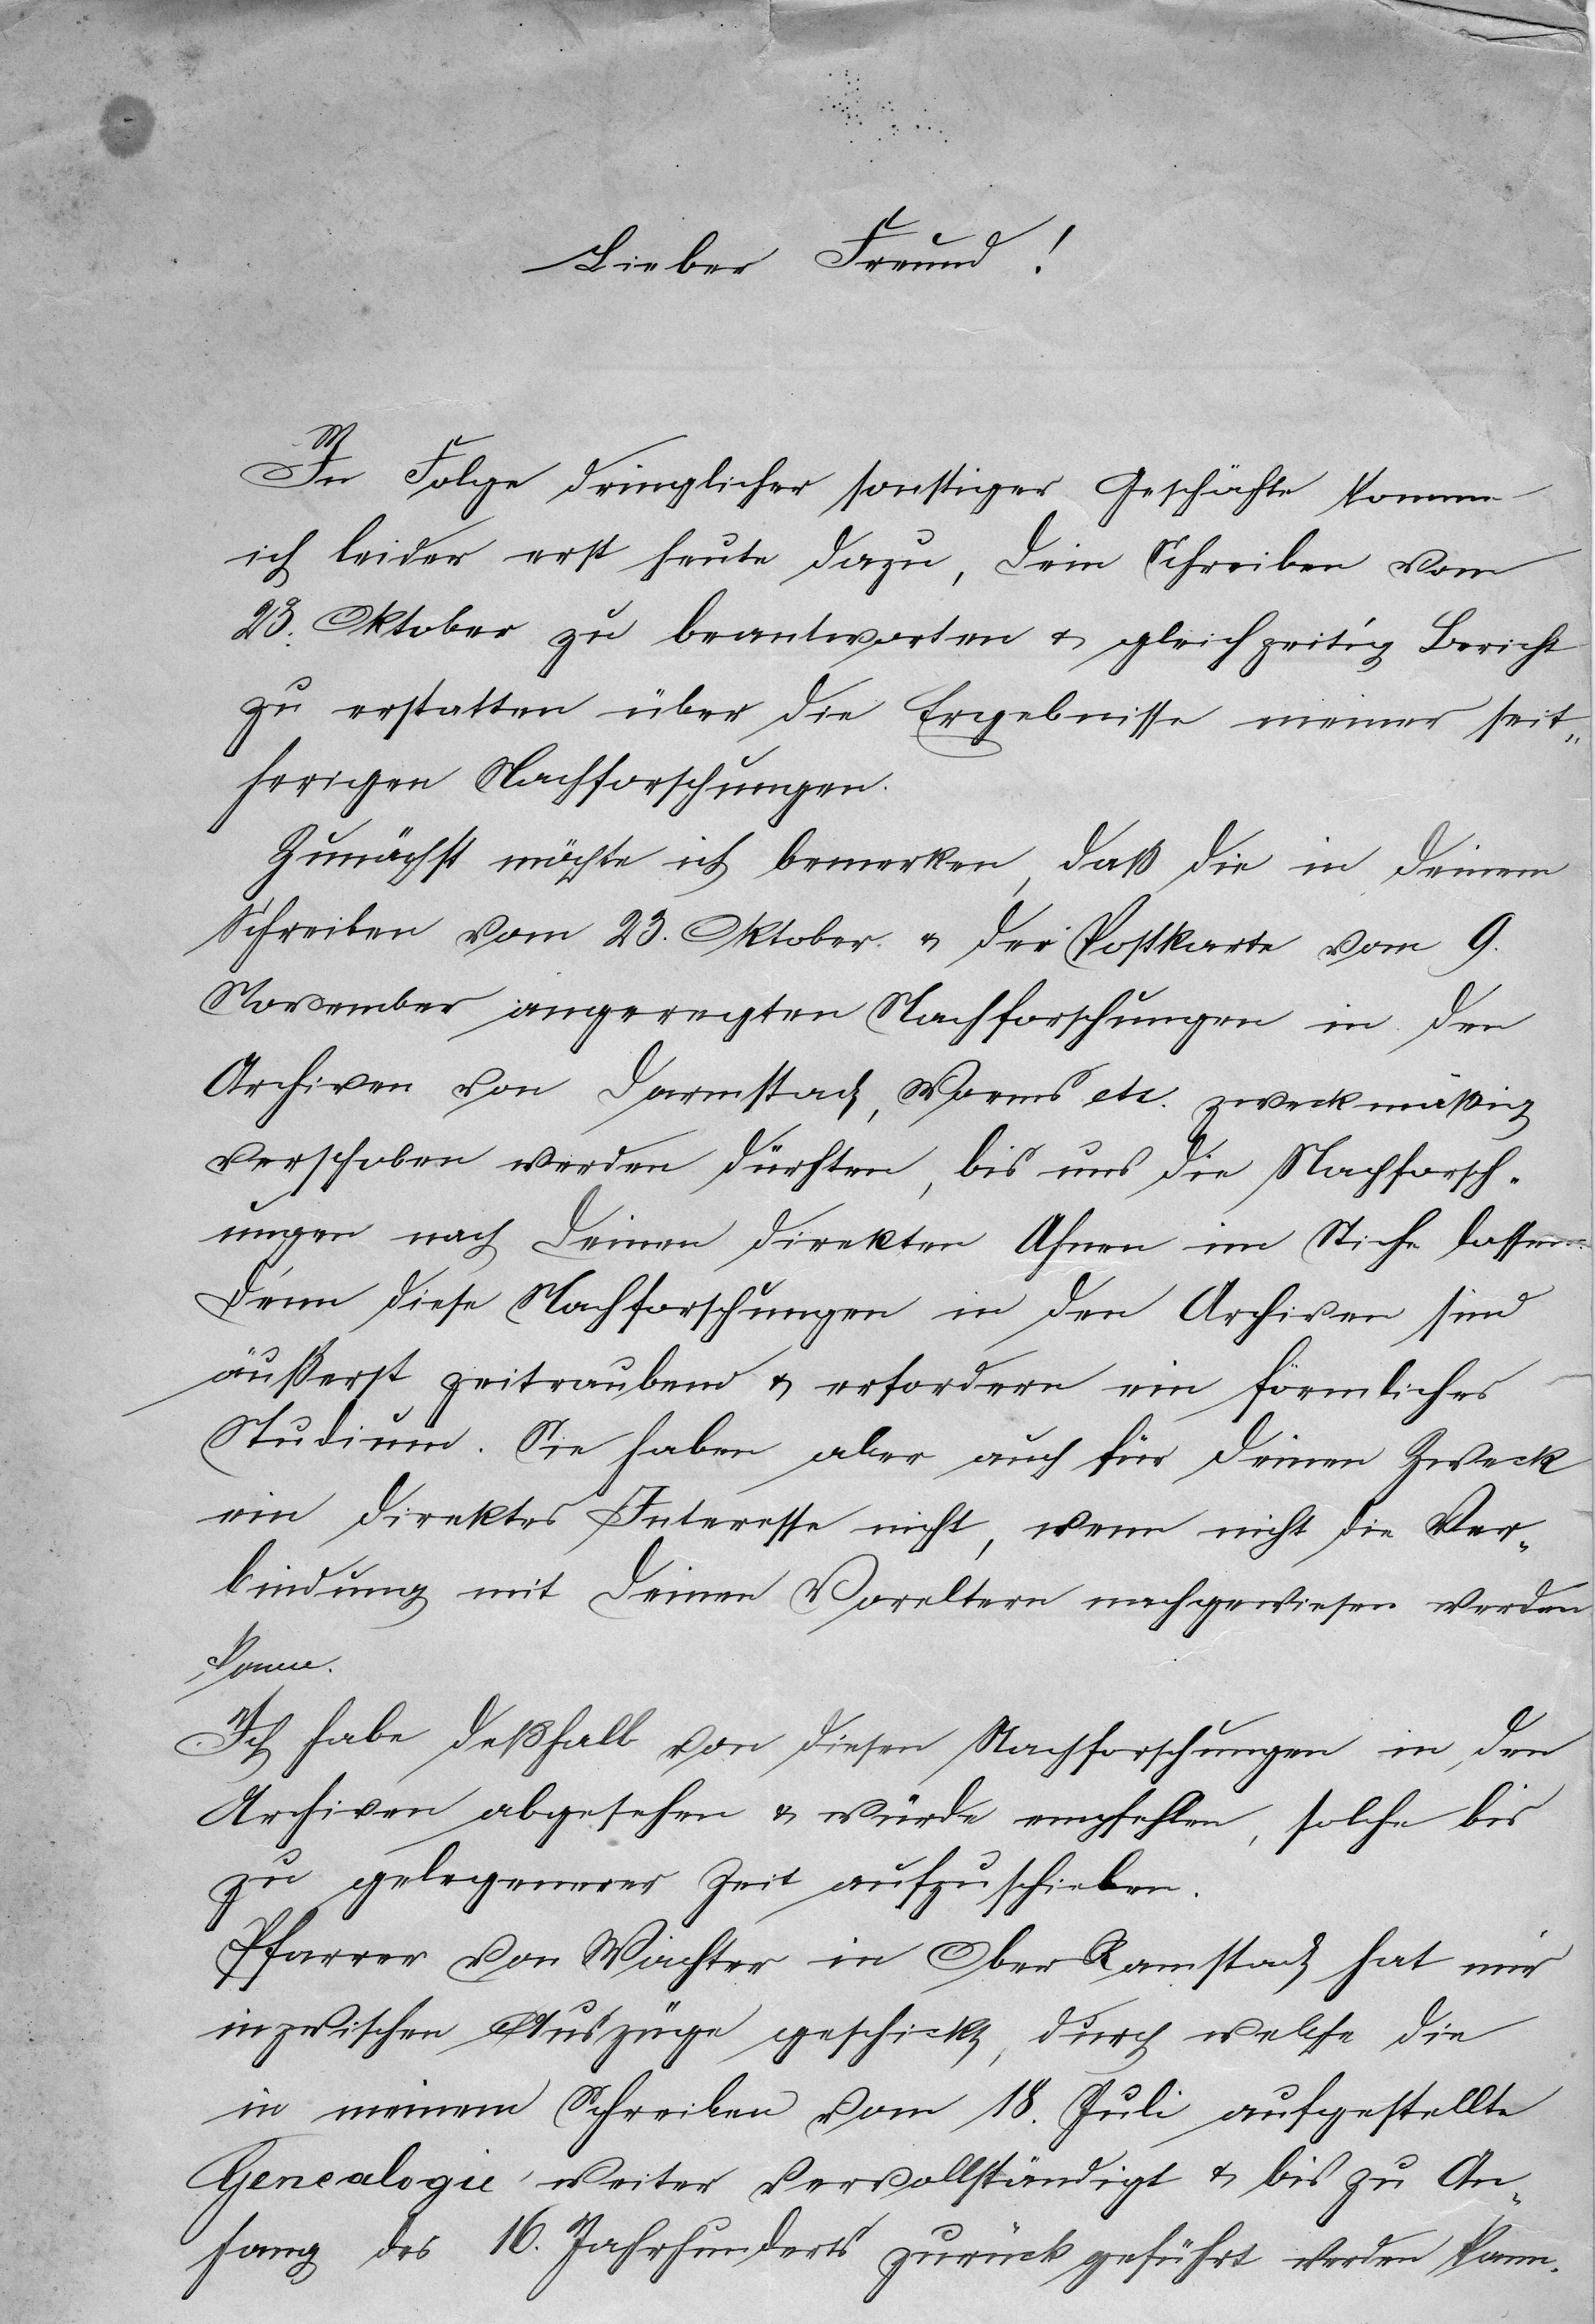 Lieber Freund!
In Folge dringlicher sonstiger Geschäfte komme
ich leider erst heute dazu, Dein Schreiben vom
23. Oktober zu beantworten & gleichzeitig Bericht
zu erstatten über die Ergebnisse meiner seit„
herigen Nachforschungen.
Zunächst möchte ich bemerken, daß die in Deinem
Schreiben vom 23. Oktober & der Postkarte vom 9.
November angeregten Nachforschungen in den
Archiven von Darmstadt, Worms etc. zweckmäßig
verschoben werden dürften, bis uns die Nachforsch„
ungen nach Deinen direkten Ahnen im Stiche lassen.
Denn diese Nachforschungen in den Archiven sind
äußerst zeitraubend & erfordern ein förmliches
Studium. Sie haben aber auch für Deinen Zweck
ein direktes Interesse nicht, wenn nicht die Ver„
bindung mit Deinen Voreltern nachgewiesen werden
kann.
Ich habe deßhalb von diesen Nachforschungen in den
Archiven abgesehen & würde empfehlen, solche bis
zu gelegenerer Zeit aufzuschieben.
Pfarrer von Wachter in Ober Ramstadt hat mir
inzwischen Auszüge geschickt, durch welche die
in meinem Schreiben vom 18. Juli aufgestellte
Genealogie weiter vervollständigt & bis zu An„
fang des 16. Jahrhunderts zurück geführt werden kann.